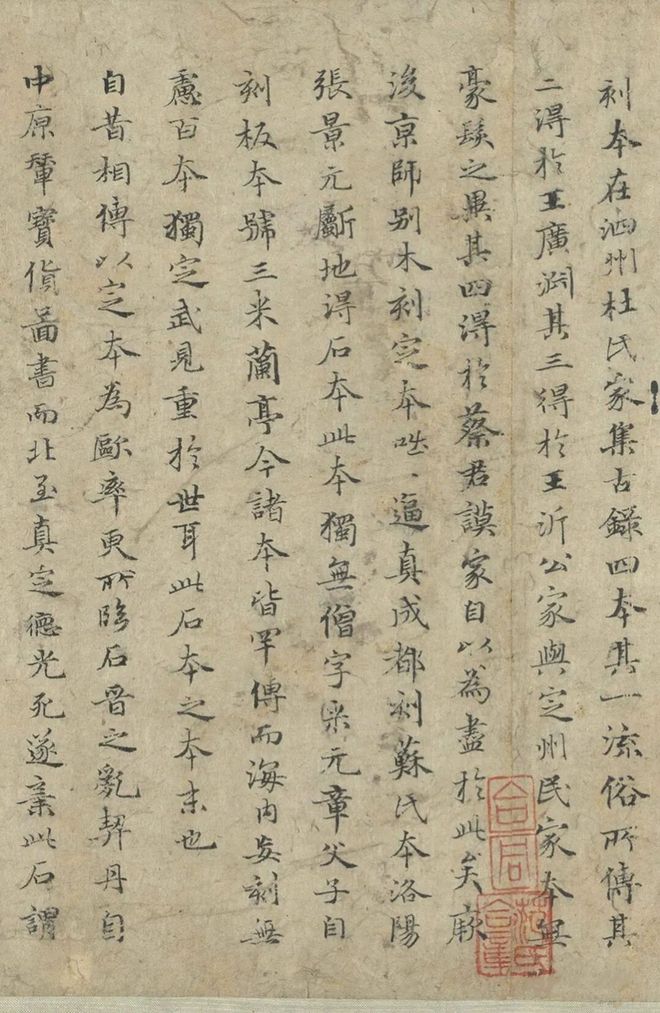 刻本在泗州杜氏家集古錄四本其一流俗所傳其
二得於王廣淵其三得於王沂公家與定州民家本無
豪髮之異其四得於蔡君謨家自以為盡於此矣厥
後京師別木刻定本咄〻逼真成都刻蘇氏本洛陽
張景元斸地得石本此本獨無僧字米元章父子自
刻板本號三米蘭亭今諸本皆罕傳而海內妄刻無
慮百本獨定武見重於世耳此石本之本末也
自昔相傳以定本為歐率更所臨石晉之亂契丹自
中原輦寶貨圖書而北至真定德光死遂棄此石謂
合同